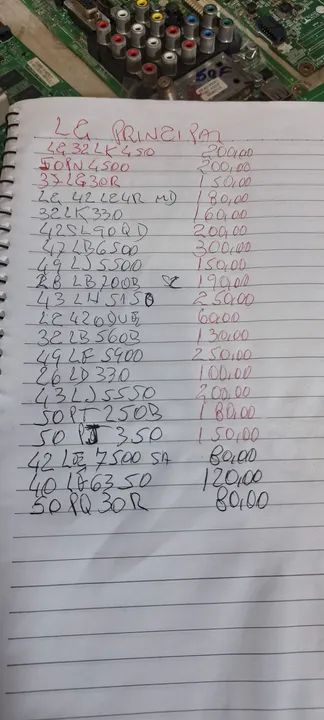 LG PRINCIPAL
LG32LK450 200,00
50PN4500 200,00
37LG30R 150,00
LG 42LE4R MD 180,00
32LK330 160,00
42SL90QD 200,00
47LB6500 300,00
49LJ5500 150,00
28 LB700B 190,00
43LH5150 250,00
60,00
32LB560B 130,00
49LF5900 250,00
26LD330 100,00
43LJ5550 200,00
50PT250B 180,00
50 PJ 350 150,00
42 LG 7500 SA 80,00
40 LG6350 120,00
50PQ30R 80,00